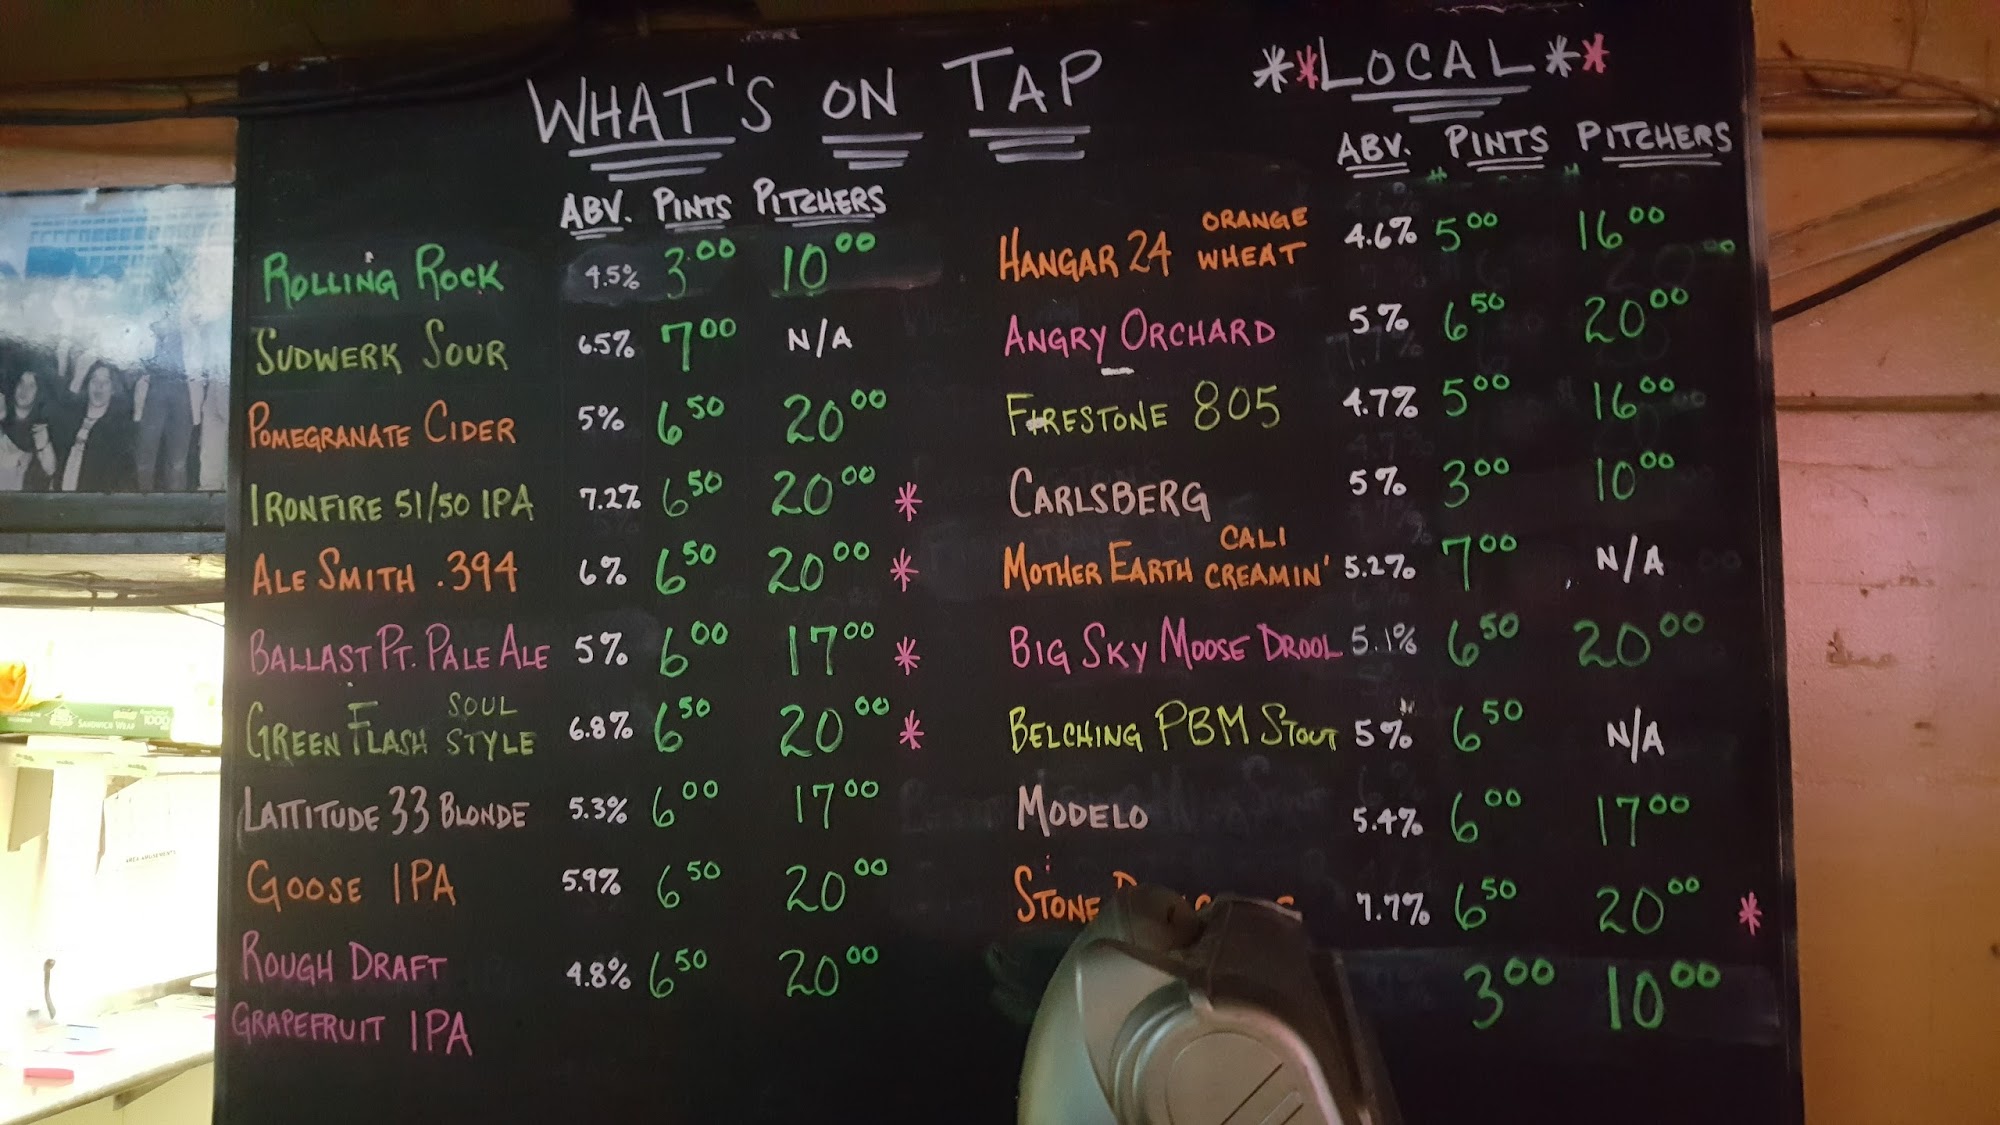 WHAT'S ON TAP
**LOCAL**
ABV. PINTS PITCHERS
ROLLING ROCK 4.5% 3.00 10.00
SUDWERK SOUR 6.5% 7.00 N/A
POMEGRANATE CIDER 5% 6.50 20.00
IRONFIRE 51/50 IPA 7.2% 6.50 20.00 *
ALE SMITH .394 6% 6.50 20.00 *
BALLAST PT. PALE ALE 5% 6.00 17.00 *
GREEN FLASH SOUL STYLE 6.8% 6.50 20.00 *
LATTITUDE 33 BLONDE 5.3% 6.00 17.00
GOOSE IPA 5.9% 6.50 20.00
ROUGH DRAFT 4.8% 6.50 20.00
GRAPEFRUIT IPA
ABV. PINTS PITCHERS
HANGAR 24 ORANGE WHEAT 4.6% 5.00 16.00
ANGRY ORCHARD 5% 6.50 20.00
FIRESTONE 805 4.7% 5.00 16.00
CARLSBERG 5% 3.00 10.00
MOTHER EARTH CALI CREAMIN' 5.2% 7.00 N/A
BIG SKY MOOSE DROOL 5.1% 6.50 20.00
BELCHING PBM STOUT 5% 6.50 N/A
MODELO 5.4% 6.00 17.00
STONE 7.7% 6.50 20.00 *
3.00 10.00
SANDWICH WRAP 1000